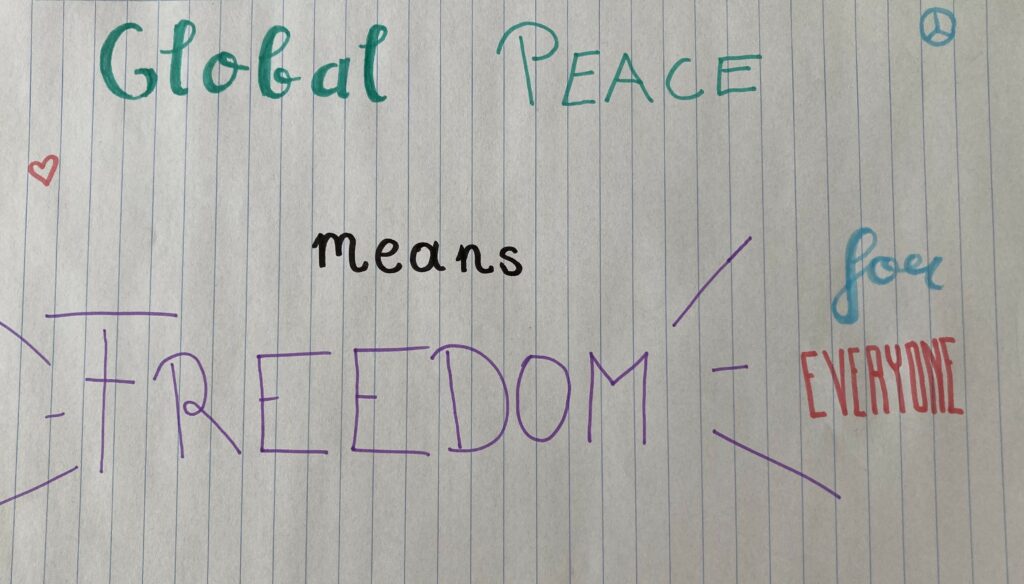 Global PEACE
means
FREEDOM
for
EVERYONE